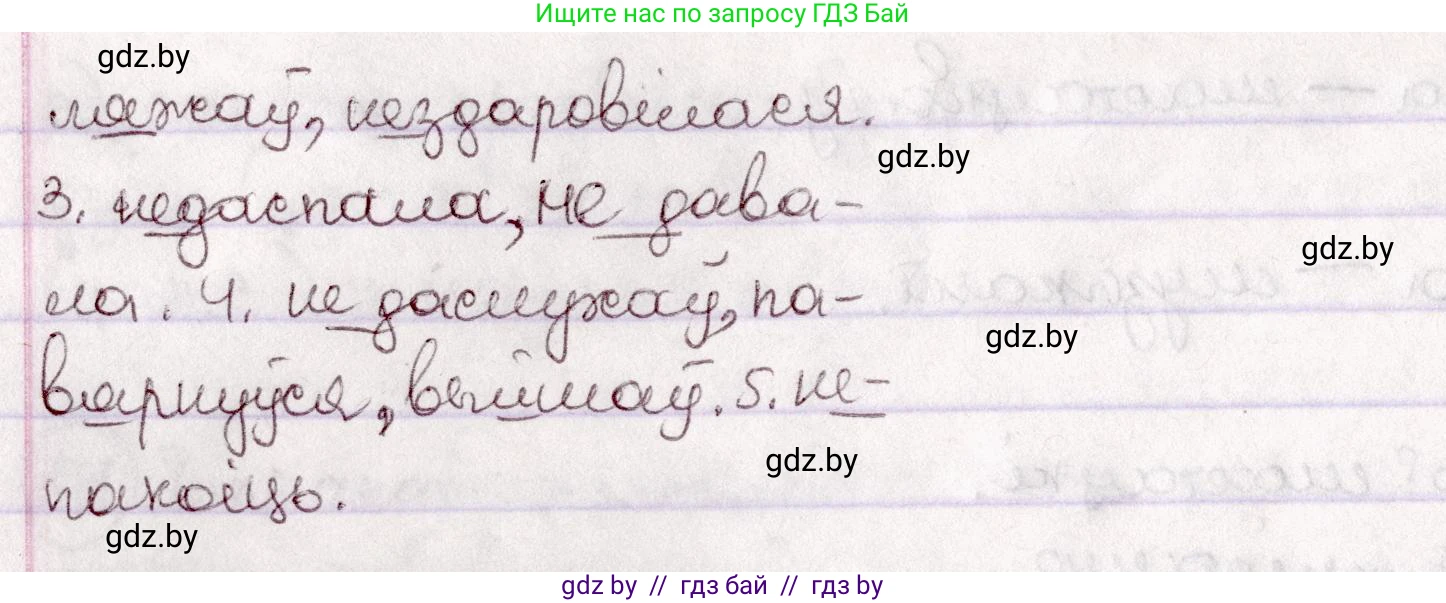 Ищите нас по запросу ГДЗ Бай
gdz.by
ляжаў, нездаровілася.
gdz.by
3. недаспала, не дава-
gdz.by
ла. 4. не даслужаў, па-
gdz.by
вярнуўся, выйшаў. 5. не-
gdz.by
пакоіць.
gdz.by
gdz by // гдз бай // гдз by